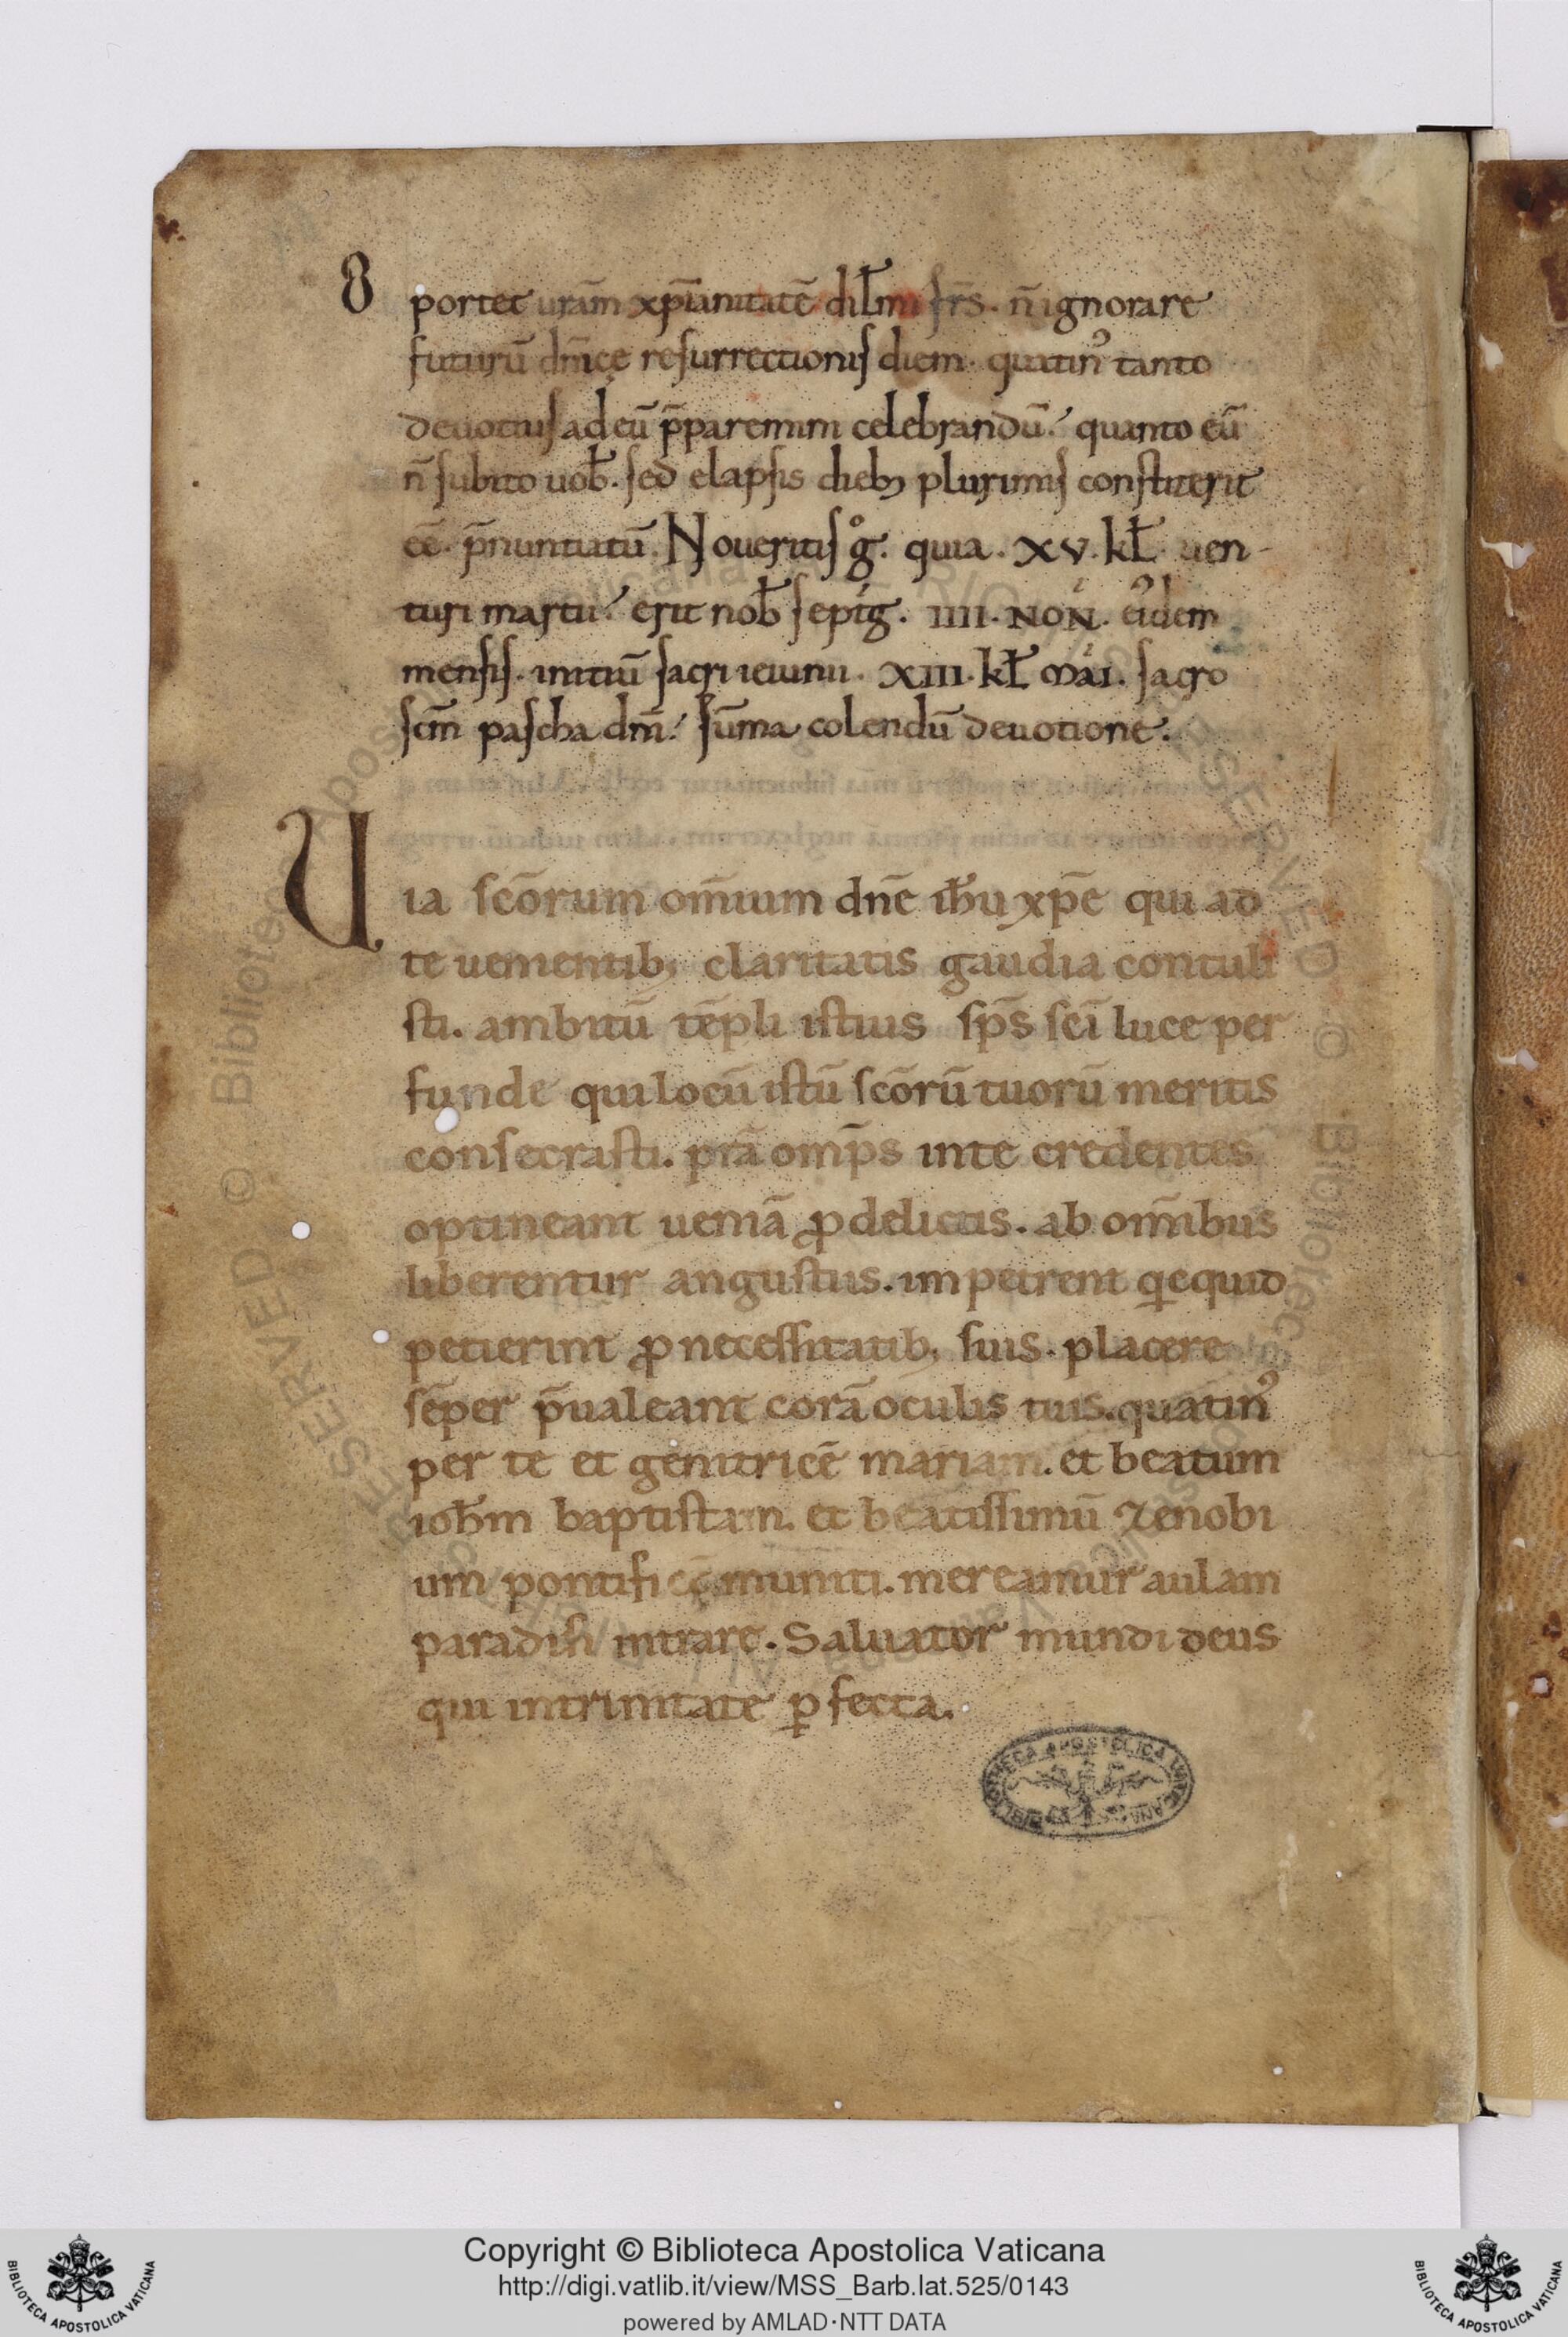 O portet urām xp̄ianitatē dił̄mi fr̄s. n̄ ignorare
futurū dn̄icę resurrectionis diem. quatin᾽ tanto
deuotius ad eū p̄paremini celebrandū. quanto eū
n̄ subito uob̄. sed elapsis dieb; plurimis constiterit
eē. p̄nuntiatū. Noueritis g̊. quia. XV. kł. uen-
turi martii. erit nob̄ septig. IIII. NON. ei᾽dem
mensis. initiū sacri ieiunii. XIII. kł Mai. sacro
scm̄ pascha dn̄i. sūma colendū deuotione.
U ia sc̄orum om̄ium dn̄e ih̄u xp̄e qui ad
te uenientib; claritatis gaudia contuli
sti. ambitū tēpli istius sp̄s sc̄i luce per
funde qui locū istū sc̄orū tuorū meritis
consecrasti. p̄ra omp̄s in te credentes
optineant ueniā ꝓ delictis. ab om̄ibus
liberentur angustiis. impetrent qicquid
petierint ꝓ necessitatib; suis. placere
sēper p̄ualeant corā oculis tuis. quatin᾽
per te et genitricē mariam. et beatum
ioh̄m baptistam. et beatissimū zenobi
um pontificē muniti. mereamur aulam
paradisi intrare. Saluator mundi deus
qui in trinitate ꝑfecta.
BIBLIOTECA APOSTOLICA VATICANA
Copyright © Biblioteca Apostolica Vaticana
http://digi.vatlib.it/view/MSS_Barb.lat.525/0143
powered by AMLAD·NTT DATA
BIBLIOTECA APOSTOLICA VATICANA
BIBLIOTECA APOSTOLICA VATICANA